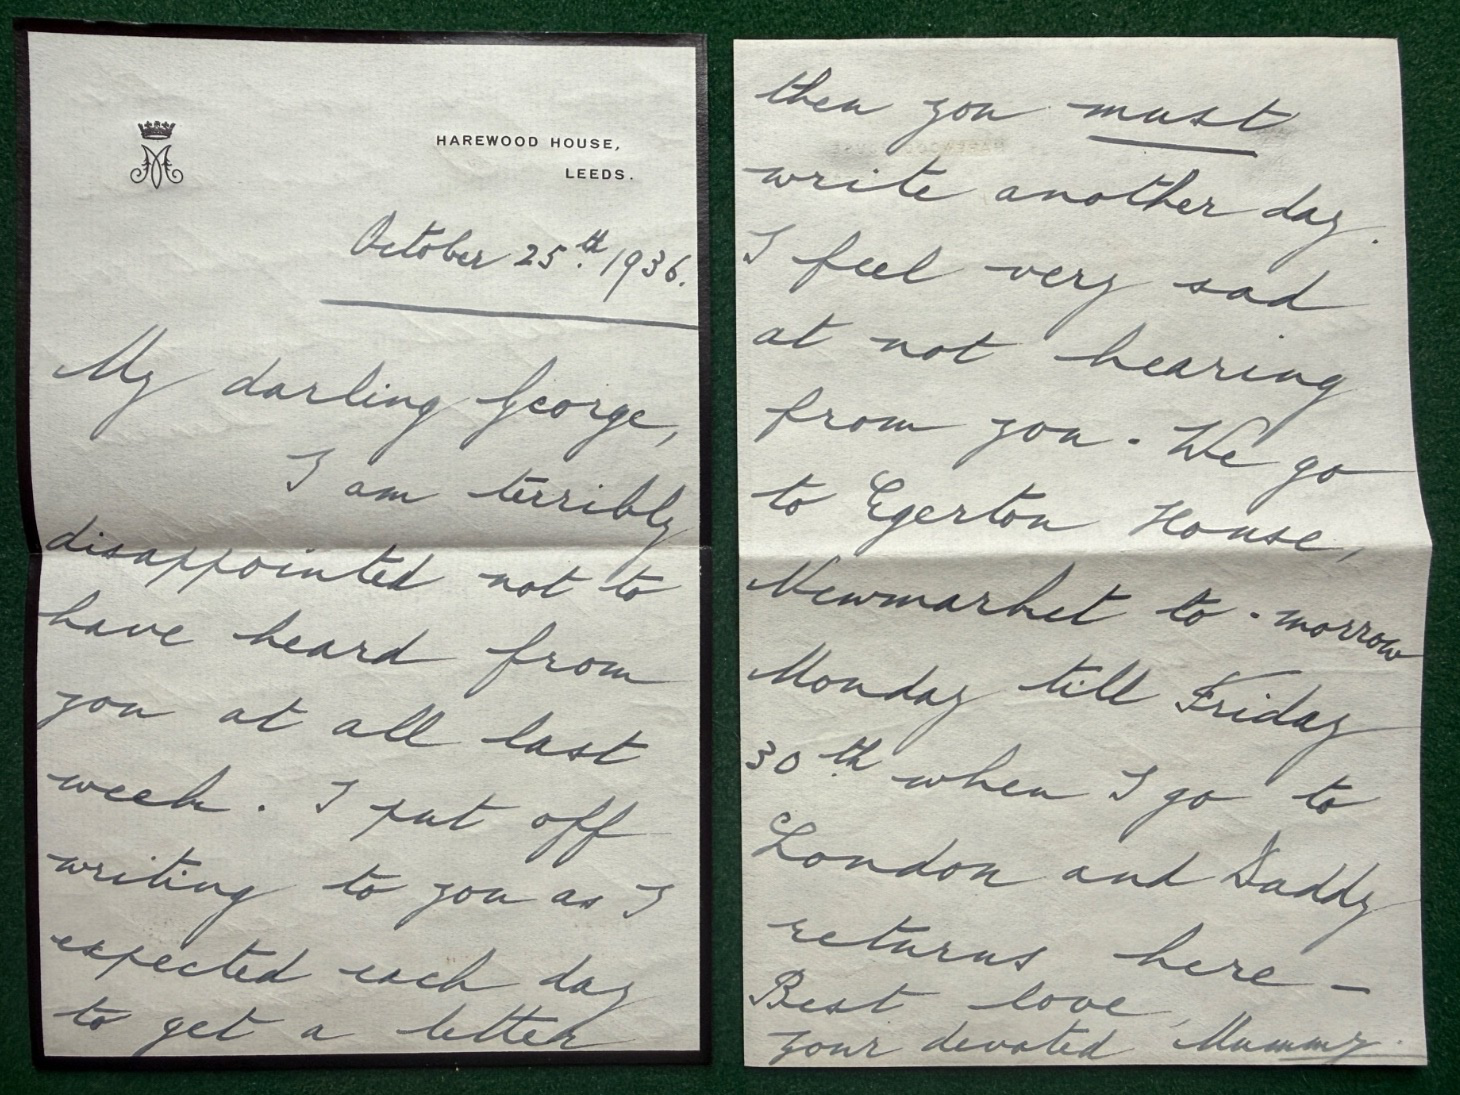 HAREWOOD HOUSE,
LEEDS.
October 25th. 1936.
My darling George,
I am terribly
disappointed not to
have heard from
you at all last
week. I put off
writing to you as I
expected each day
to get a letter
then you must
write another day.
I feel very sad
at not hearing
from you. We go
to Egerton House,
Newmarket to-morrow
Monday till Friday
30th when I go to
London and Daddy
returns here –
Best love,
your devoted Mummy.